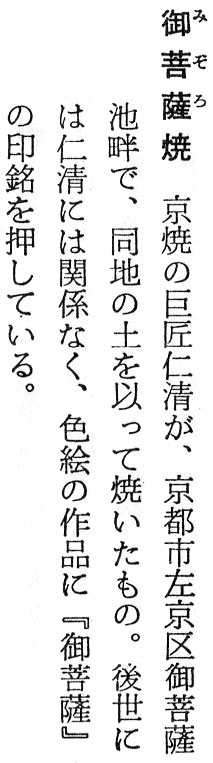 御菩薩焼 京焼の巨匠仁清が、京都市左京区御菩薩
みぞろ
池畔で、同地の土を以って焼いたもの。後世に
は仁清には関係なく、色絵の作品に『御菩薩』
の印銘を押している。